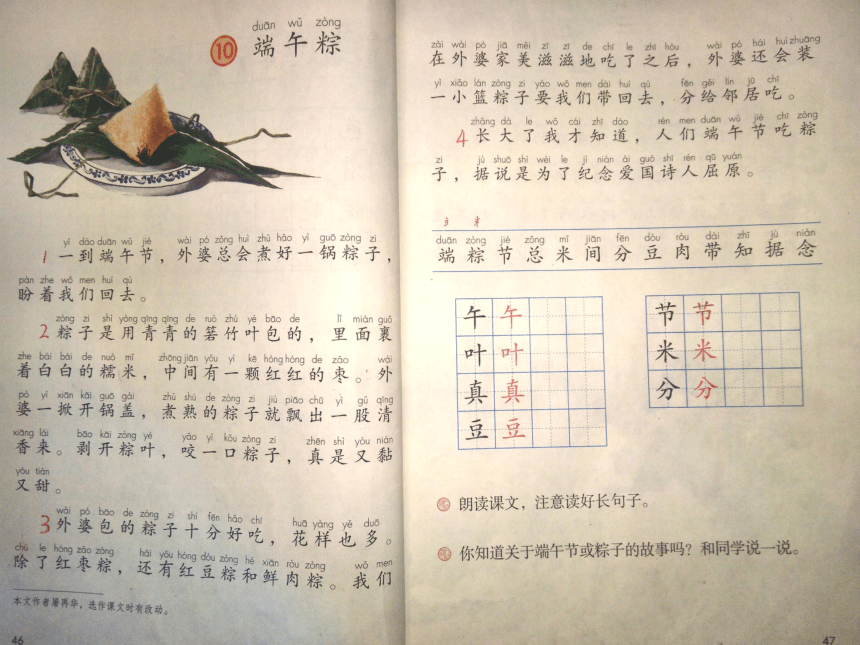 duān wǔ zòng
10 端午粽
yí dào duān wǔ jié wài pó zǒng huì zhǔ hǎo yì guō zòng zi
1 一到端午节，外婆总会煮好一锅粽子，
pàn zhe wǒ men huí qù
盼着我们回去。
zòng zi shì yòng qīng qīng de ruò zhú yè bāo de lǐ miàn guǒ
2 粽子是用青青的箬竹叶包的，里面裹
zhe bái bái de nuò mǐ zhōng jiān yǒu yì kē hóng hóng de zǎo wài
着白白的糯米，中间有一颗红红的枣。外
pó yì xiān kāi guō gài zhǔ shú de zòng zi jiù piāo chū yì gǔ qīng
婆一掀开锅盖，煮熟的粽子就飘出一股清
xiāng lái bāo kāi zòng yè yǎo yì kǒu zòng zi zhēn shì yòu nián
香来。剥开粽叶，咬一口粽子，真是又黏
yòu tián
又甜。
wài pó bāo de zòng zi shí fēn hǎo chī huā yàng yě duō
3 外婆包的粽子十分好吃，花样也多。
chú le hóng zǎo zòng hái yǒu hóng dòu zòng hé xiān ròu zòng wǒ men
除了红枣粽，还有红豆粽和鲜肉粽。我们
本文作者屠再华，选作课文时有改动。
46
zài wài pó jiā měi zī zī de chī le zhī hòu wài pó hái huì zhuāng
在外婆家美滋滋地吃了之后，外婆还会装
yì xiǎo lán zòng zi yào wǒ men dài huí qù fēn gěi lín jū chī
一小篮粽子要我们带回去，分给邻居吃。
zhǎng dà le wǒ cái zhī dào rén men duān wǔ jié chī zòng
4 长大了我才知道，人们端午节吃粽
zi jù shuō shì wèi le jì niàn ài guó shī rén qū yuán
子，据说是为了纪念爱国诗人屈原。
duān zòng jié zǒng mǐ jiān fēn dòu ròu dài zhī jù niàn
端粽节总米间分豆肉带知据念
午 午 节 节
叶 叶 米 米
真 真 分 分
豆 豆
朗读课文，注意读好长句子。
你知道关于端午节或粽子的故事吗？和同学说一说。
47